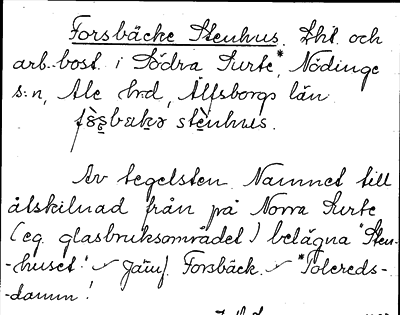 Forsbäcke Stenhus. Iht. och
arb.bost. i Södra Surte*, Nödinge
s:n, Ale hrd, Älfsborgs län
stènhus.
Av tegelsten. Namnet till
åtskilnad från på Norra Surte
(eg. glasbruksområdet) belägna "Sten-
-huset". Jämf. Forsbäck. *Tolereds-
-damm!